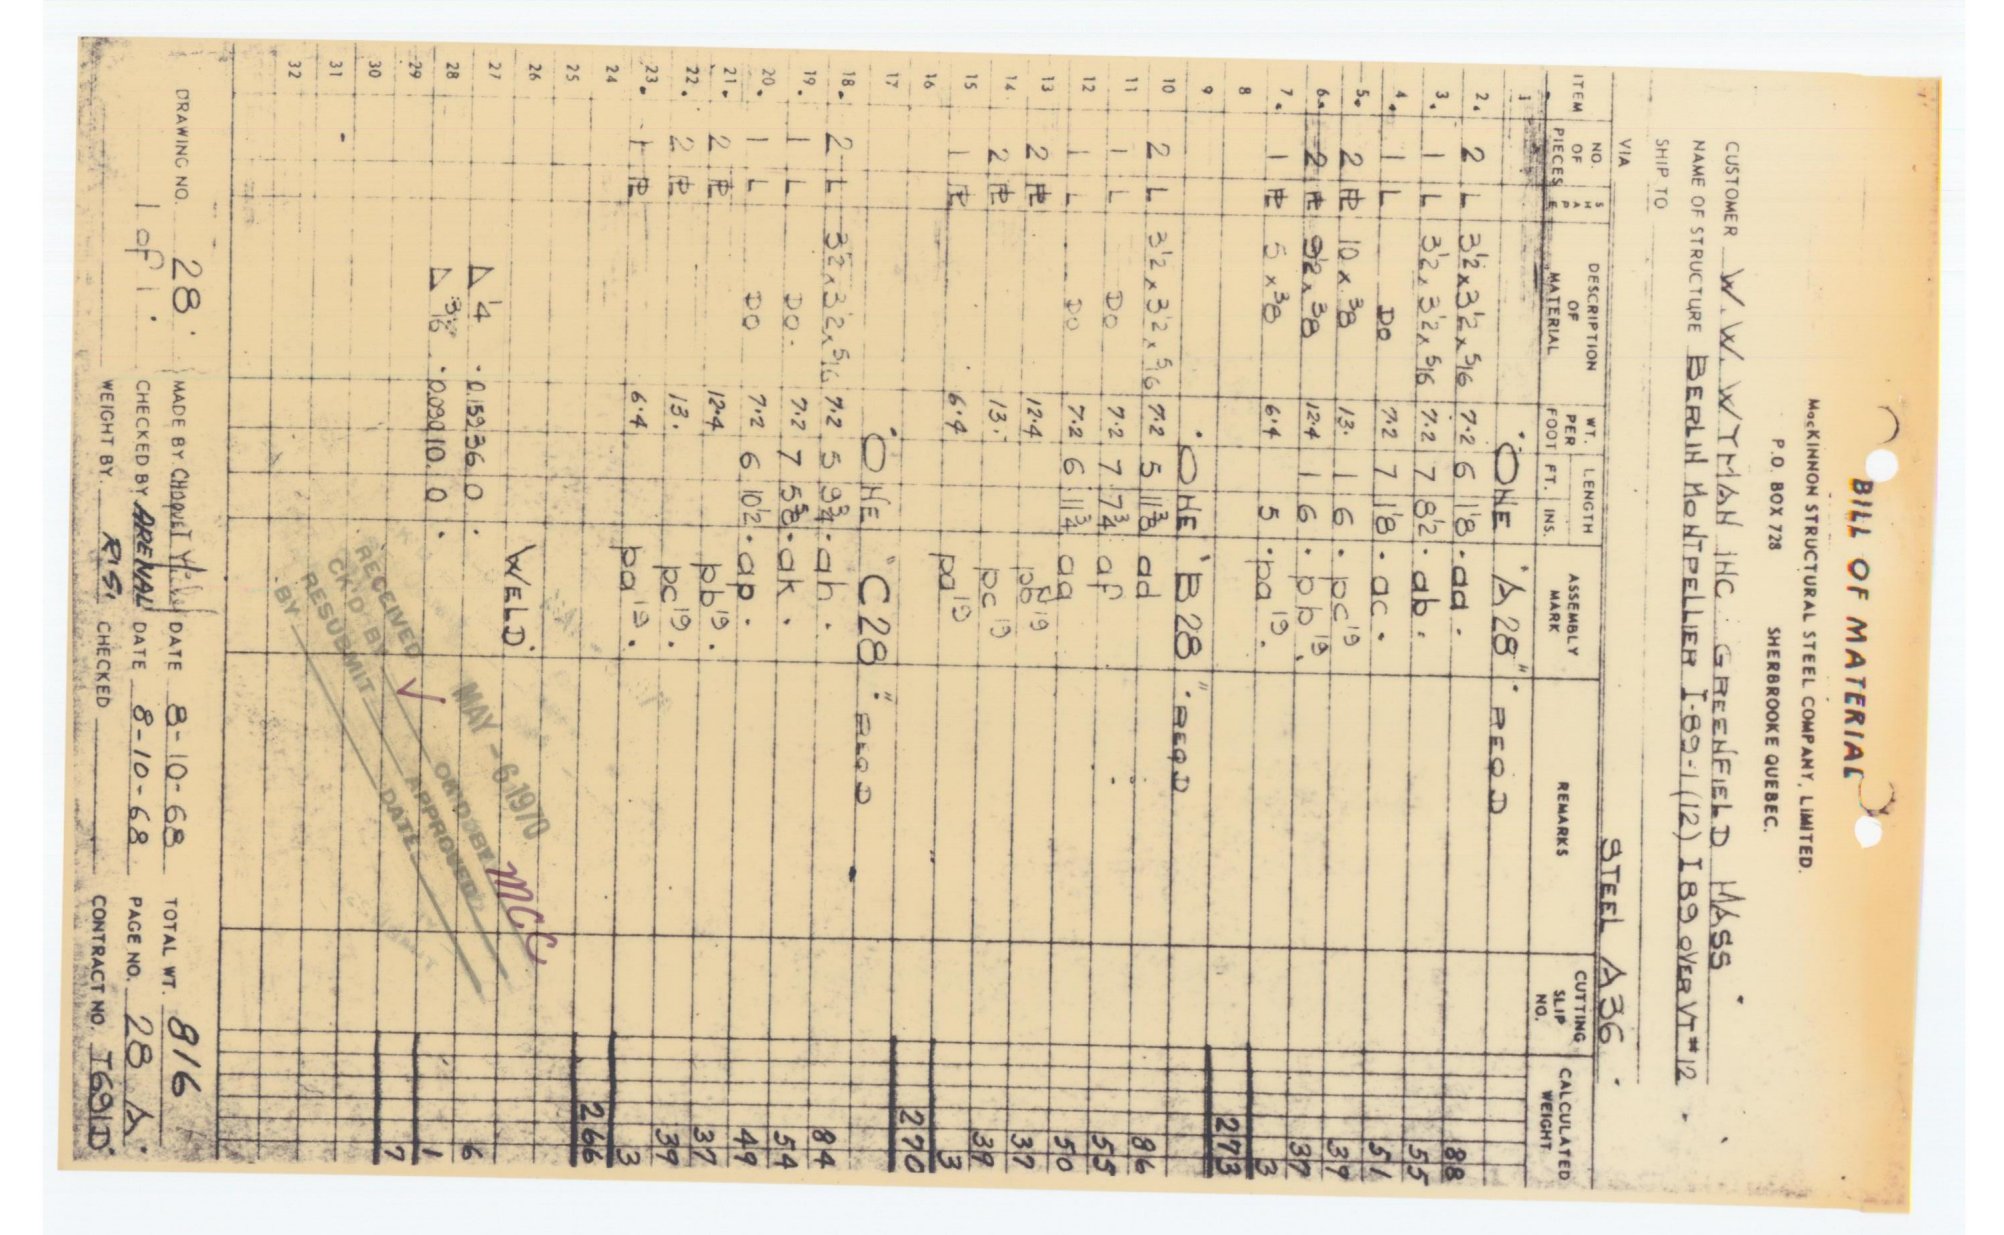 BILL OF MATERIAL
MacKINNON STRUCTURAL STEEL COMPANY, LIMITED.
P.O. BOX 728 SHERBROOKE QUEBEC.
CUSTOMER W. W. WYMAN INC. GREENFIELD MASS
NAME OF STRUCTURE BERLIN MONTPELLIER I-89-1(12) I 89 OVER VT #12
SHIP TO
VIA STEEL A36
ITEM NO. OF PIECES SHAPE DESCRIPTION OF MATERIAL WT. PER FOOT LENGTH FT. INS. ASSEMBLY MARK REMARKS CUTTING SLIP NO. CALCULATED WEIGHT
1 ONE "A28" REQD
2. 2 L 3 1/2 x 3 1/2 x 5/16 7.2 6 1 1/8 aa 88
3. 1 L 3 1/2 x 3 1/2 x 5/16 7.2 7 8 1/2 ab 55
4. 1 L DO 7.2 7 1 1/8 ac 51
5. 2 PL 10 x 3/8 13. 1 6 pc19 39
6. 2 PL 9 1/2 x 3/8 12.4 1 6 pb19 37
7. 1 PL 5 x 3/8 6.4 5 pa19 3
8 273
9 ONE "B28" REQD
10 2 L 3 1/2 x 3 1/2 x 5/16 7.2 5 11 3/8 ad 86
11 1 L DO 7.2 7 7 3/4 af 55
12 1 L DO 7.2 6 11 3/4 ag 50
13 2 PL 12.4 pb19 37
14 2 PL 13. pc19 39
15 1 PL 6.4 pa19 3
16 270
17 ONE "C28" REQD
18. 2 L 3 1/2 x 3 1/2 x 5/16 7.2 5 9 3/4 ah 84
19. 1 L DO. 7.2 7 5 5/8 ak 54
20. 1 L DO 7.2 6 10 1/2 ap 49
21. 2 PL 12.4 pb19 37
22. 2 PL 13. pc19 39
23. 1 PL 6.4 pa19 3
24 266
25
26 WELD
27 1/4 0.159 36 0 6
28 3/16 0.090 10 0 1
29 7
30
31
32
MAY -6 1970
RECEIVED
CK'D BY MCC
RESUBMIT APPROVED
BY DATE
DRAWING NO. 28 MADE BY DATE 8-10-68 TOTAL WT. 816
1 of 1 CHECKED BY ARENAL DATE 8-10-68 PAGE NO. 28 A
WEIGHT BY CHECKED CONTRACT NO. T691D